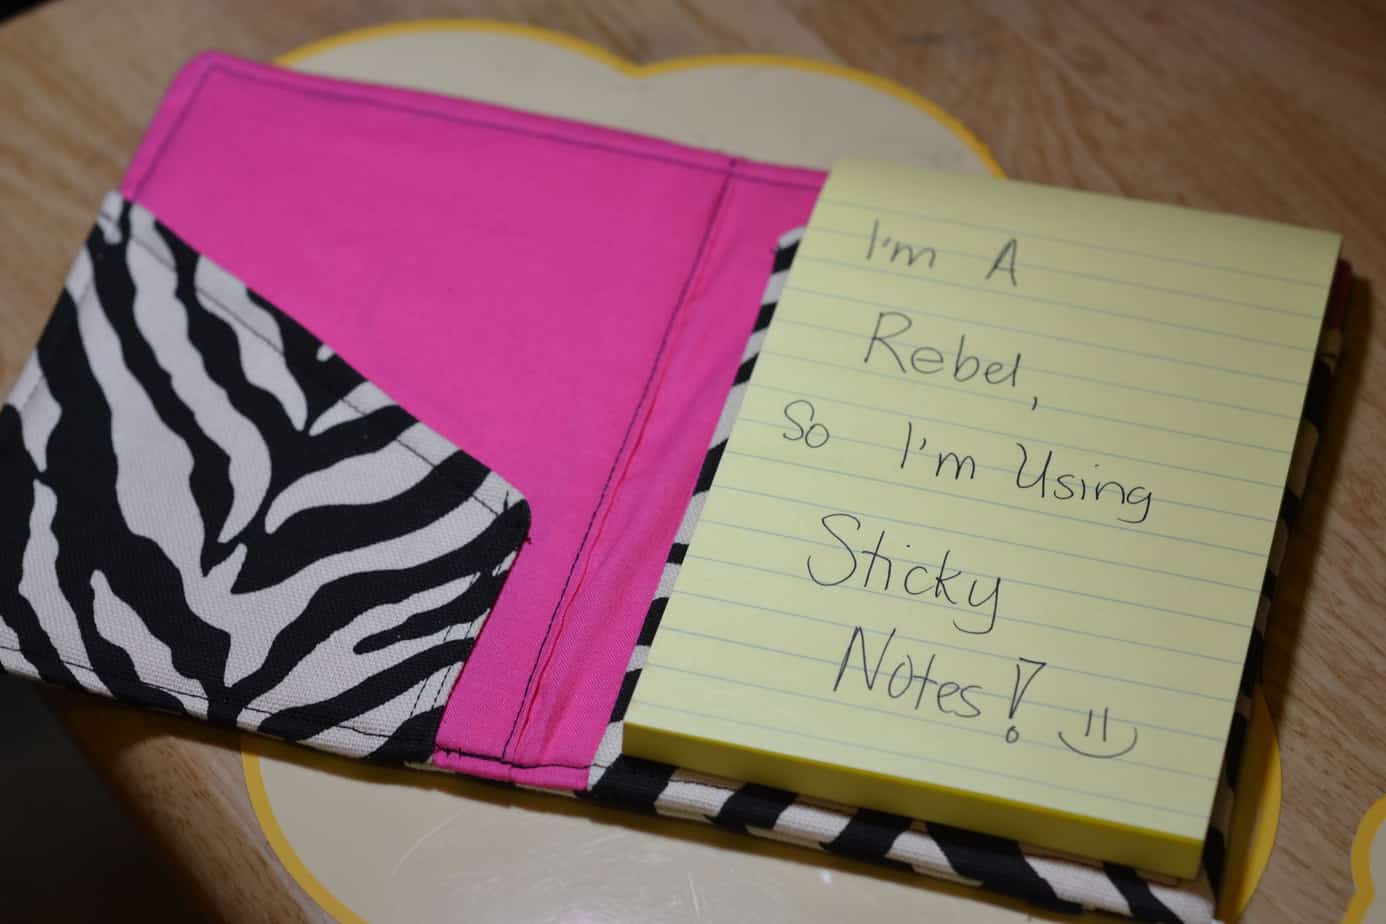 I'm A
Rebel,
So I'm Using
Sticky
Notes! =)